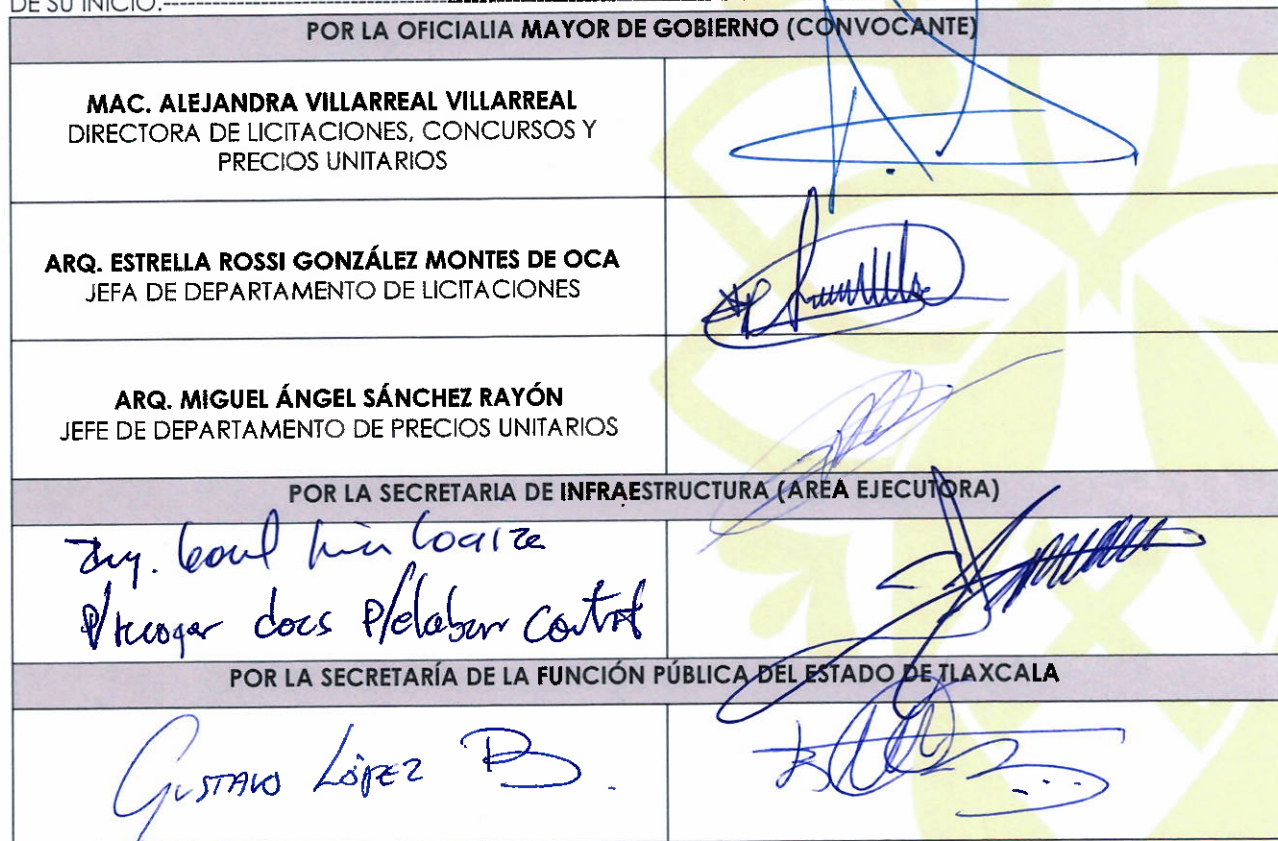 DE SU INICIO.-----------------------------------
POR LA OFICIALIA MAYOR DE GOBIERNO (CONVOCANTE)
MAC. ALEJANDRA VILLARREAL VILLARREAL
DIRECTORA DE LICITACIONES, CONCURSOS Y
PRECIOS UNITARIOS
ARQ. ESTRELLA ROSSI GONZÁLEZ MONTES DE OCA
JEFA DE DEPARTAMENTO DE LICITACIONES
ARQ. MIGUEL ÁNGEL SÁNCHEZ RAYÓN
JEFE DE DEPARTAMENTO DE PRECIOS UNITARIOS
POR LA SECRETARIA DE INFRAESTRUCTURA (AREA EJECUTORA)
Ing.
P/recoger docs P/elaborar
POR LA SECRETARÍA DE LA FUNCIÓN PÚBLICA DEL ESTADO DE TLAXCALA
GUSTAVO LÓPEZ B.